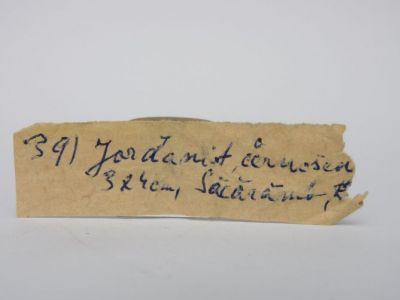 391 Jordanit, černošed
3x4cm, Săcărămb, R